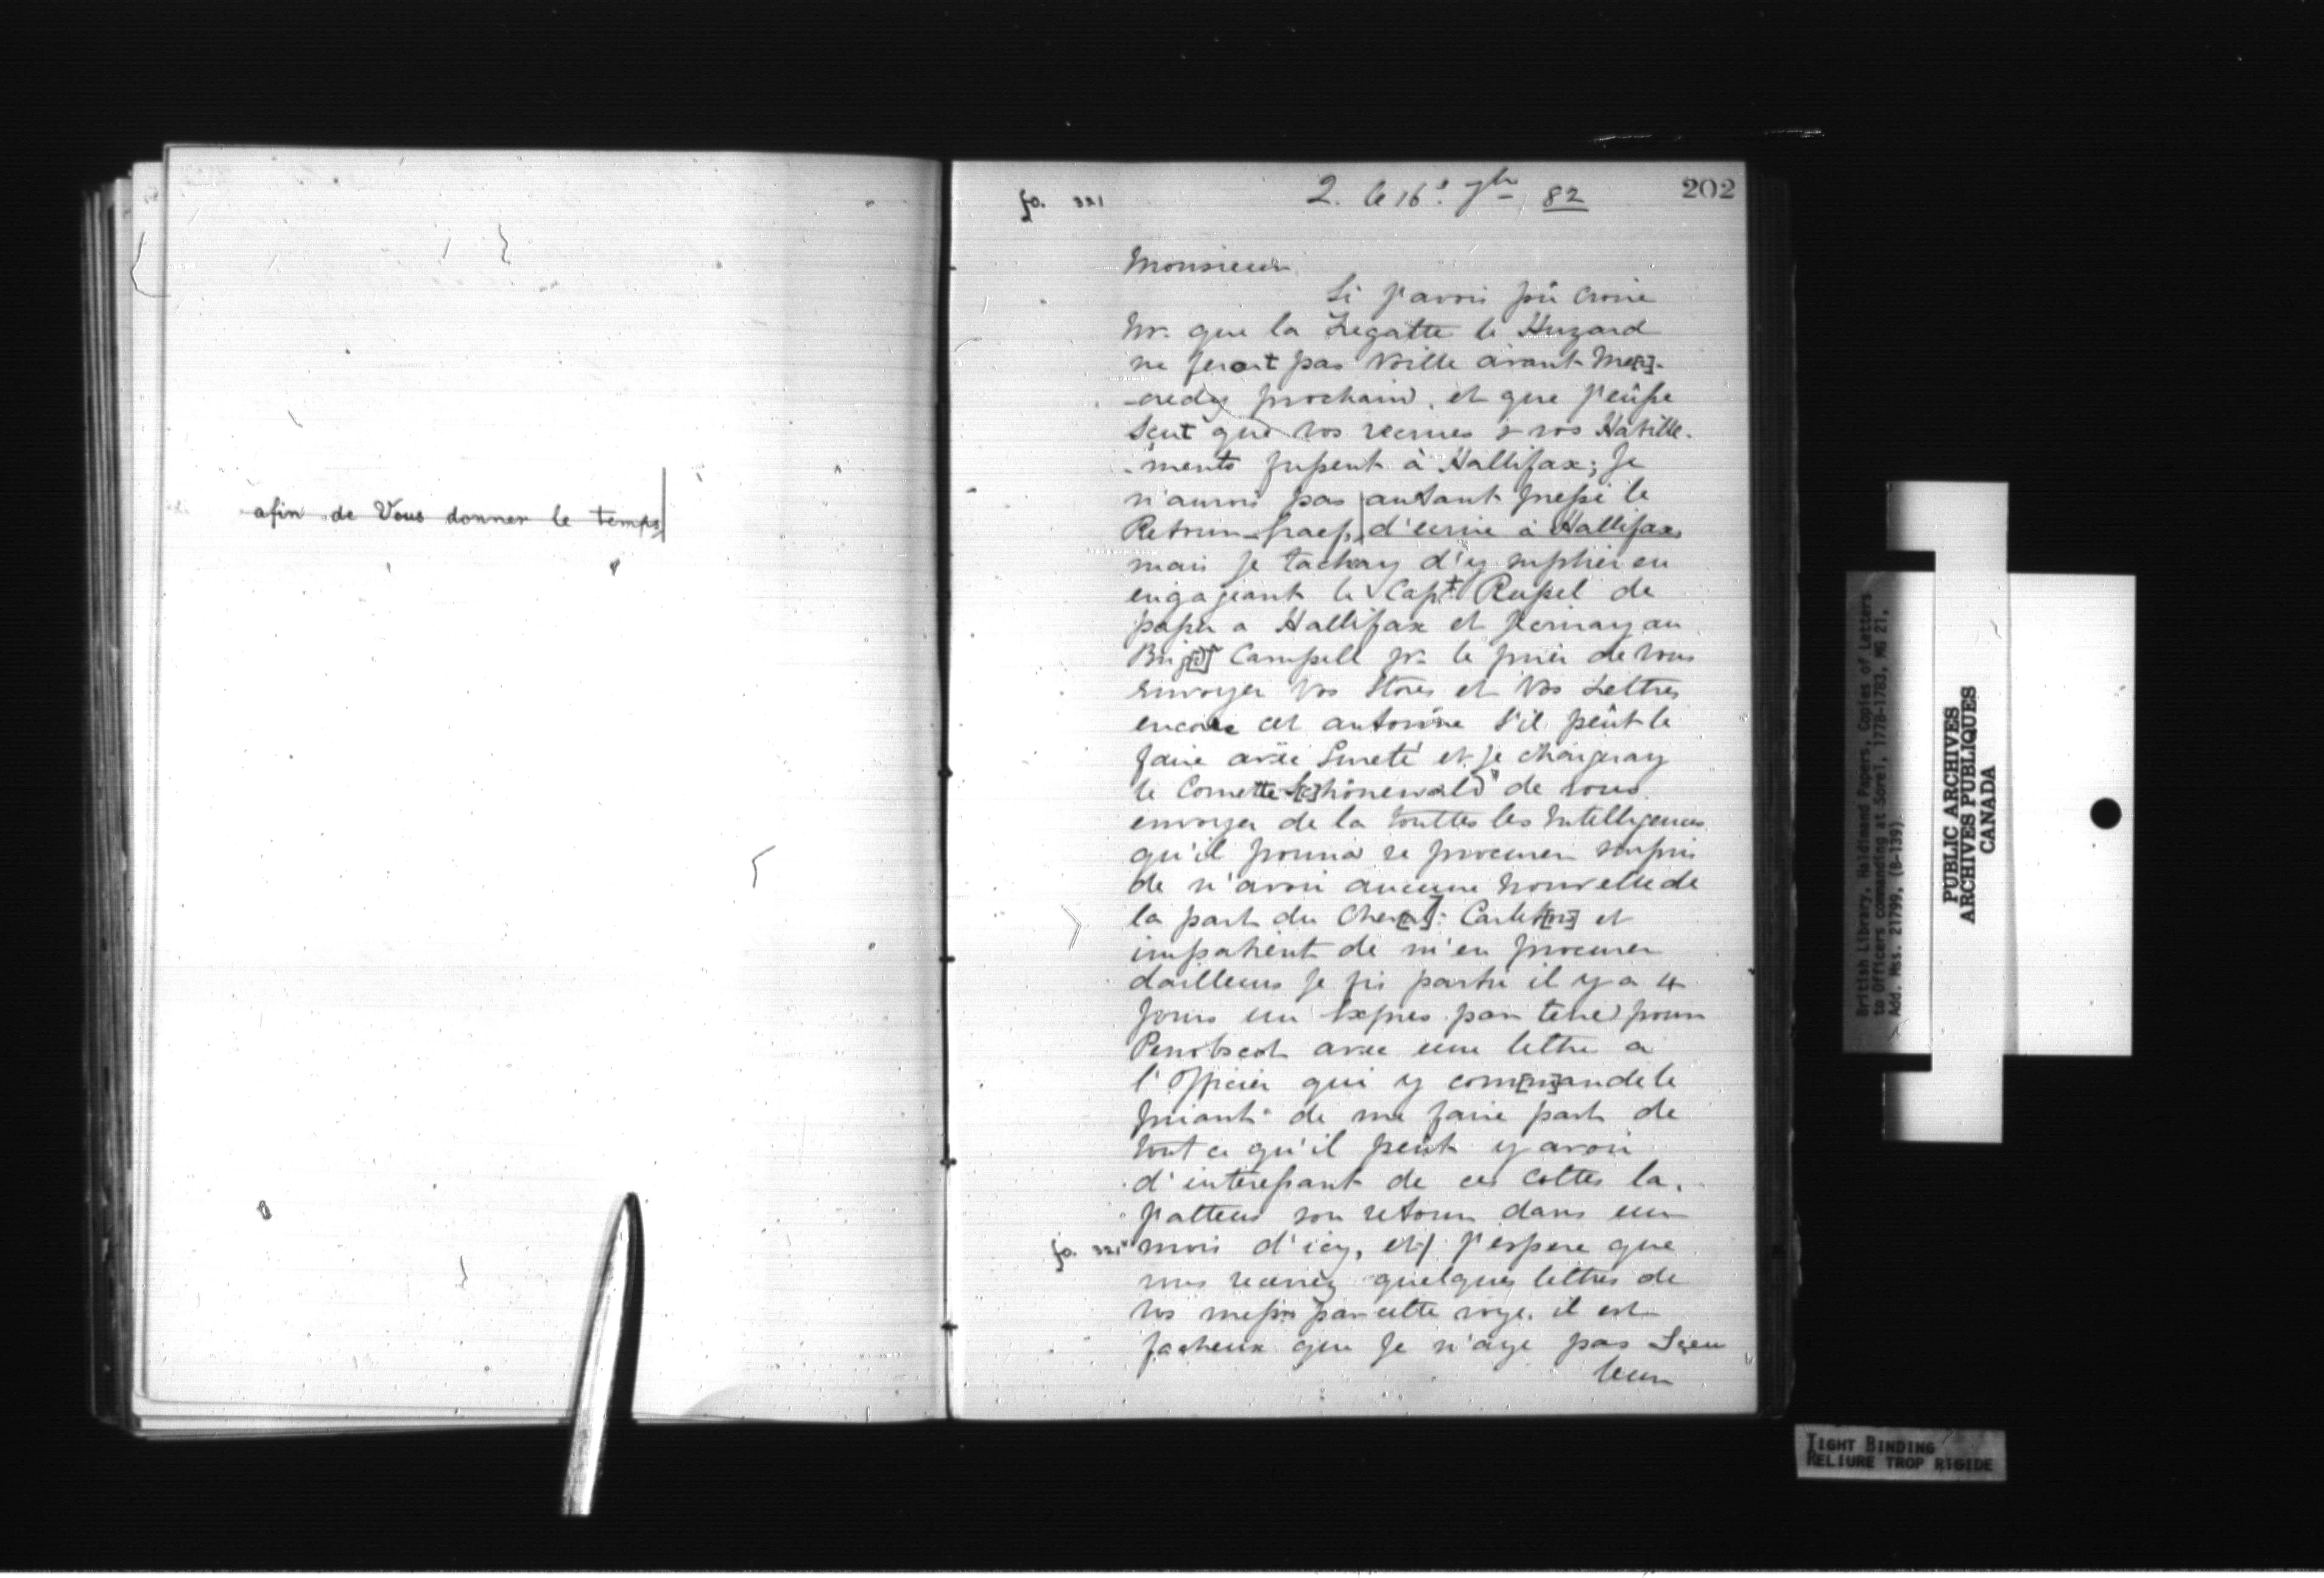 afin de Vous donner le temps
fo. 321
2. le 16e. 7br 82
202
Monsieur
Si j'avois pû croire
Mr. que la Fregatte le Huzard
ne feroit pas voille avant Me[r].
-credy prochain, et que j'eûsse
Sçut que vos recrues & vos Habille-
-ments fussent à Hallifax; Je
n'aurois pas autant pressé le
Retour d'ecrire à Hallifax,
mais je tachay d'y supléer en
engageant le Capt. Russel de
passer a Hallifax et j'ecrivay au
Brig[r] Campell pr. le prier de vous
envoyer Vos Stores et Vos Lettres
encore cet automne s'il peût le
faire avëc Sureté et je chargeray
le Cornette S[c]hönewald de vous
envoyer de la touttes les Intelligences
qu'il pourra se procurer surpris
de n'avoir aucune Nouvelle de
la part du Chev[r]: Carlet[on] et
impatient de m'en procurer
dailleurs je fis partir il y a 4
jours un Exprès par terre pour
Penobscot avec une lettre a
l'Officier qui y com[m]ande le
priant de me faire part de
tout ce qu'il peût y avoir
d'interessant de ces Cottes la.
j'attens son retour dans un
fo. 321v mois d'icy, et j'espere que
vous recevrez quelques lettres de
vos messrs par cette voye. il est
facheux que je n'aye pas Sçeu
leur
British Library, Haldimand Papers, Copies of Letters
to Officers commanding at Sorel, 1778-1783, MG 21,
Add. Mss. 21799, (B-139)
PUBLIC ARCHIVES
ARCHIVES PUBLIQUES
CANADA
TIGHT BINDING
RELIURE TROP RIGIDE